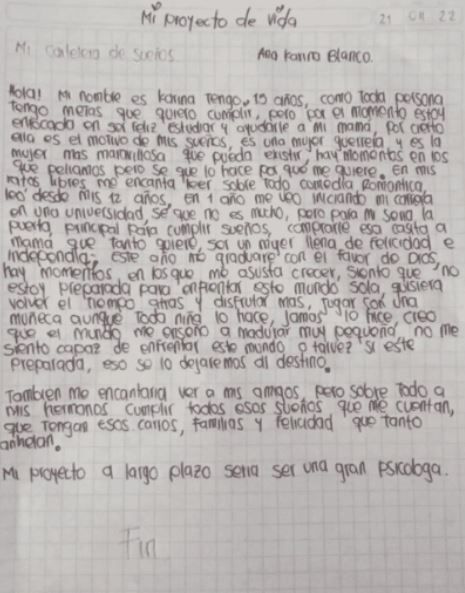 Mi proyecto de vida 21 09 22
Mi carretera de sueños Ana Karina Blanco.
Hola! Mi nombre es Karina Tengo, 15 años, como Toda persona
Tengo metas que quiero cumplir, pero por el momento estoy
enfocado en ser feliz estudiar y ayudarle a mi mama, por cierto
ella es el motivo de mis sueños, es una mujer guerrera y es la
mujer mas maravillosa que pueda existir, hay momentos en los
que peliamos pero se que lo hace por que me quiere. En mis
ratos libres me encanta leer sobre Todo comedia Romantica,
leo desde mis 12 años, en 1 año me veo iniciando mi carrera
en una universidad, se que no es mucho, pero para mi sera la
puerta principal para cumplir sueños, comprarle esa casita a
mama que Tanto quiere, ser un mujer llena de felicidad e
independia, este año me graduare con el favor de Dios,
hay momentos en los que me asusta crecer, siento que no
estoy preparada para enfrentar este mundo sola, quisiera
volver el Tiempo atras y disfrutar mas, jugar con una
muñeca aunque Toda niña lo hace, jamas lo hice, creo
que el mundo me enseño a madurar muy pequeña, no me
siento capaz de enfrentar este mundo o talvez si este
preparada, eso se lo dejaremos al destino.
Tambien me encantaria ver a mis amigos, pero sobre Todo a
mis hermanos cumplir todos esos sueños que me cuentan,
que Tengan esos carros, familias y felicidad que tanto
anhelan.
Mi proyecto a largo plazo seria ser una gran psicologa.
Fin